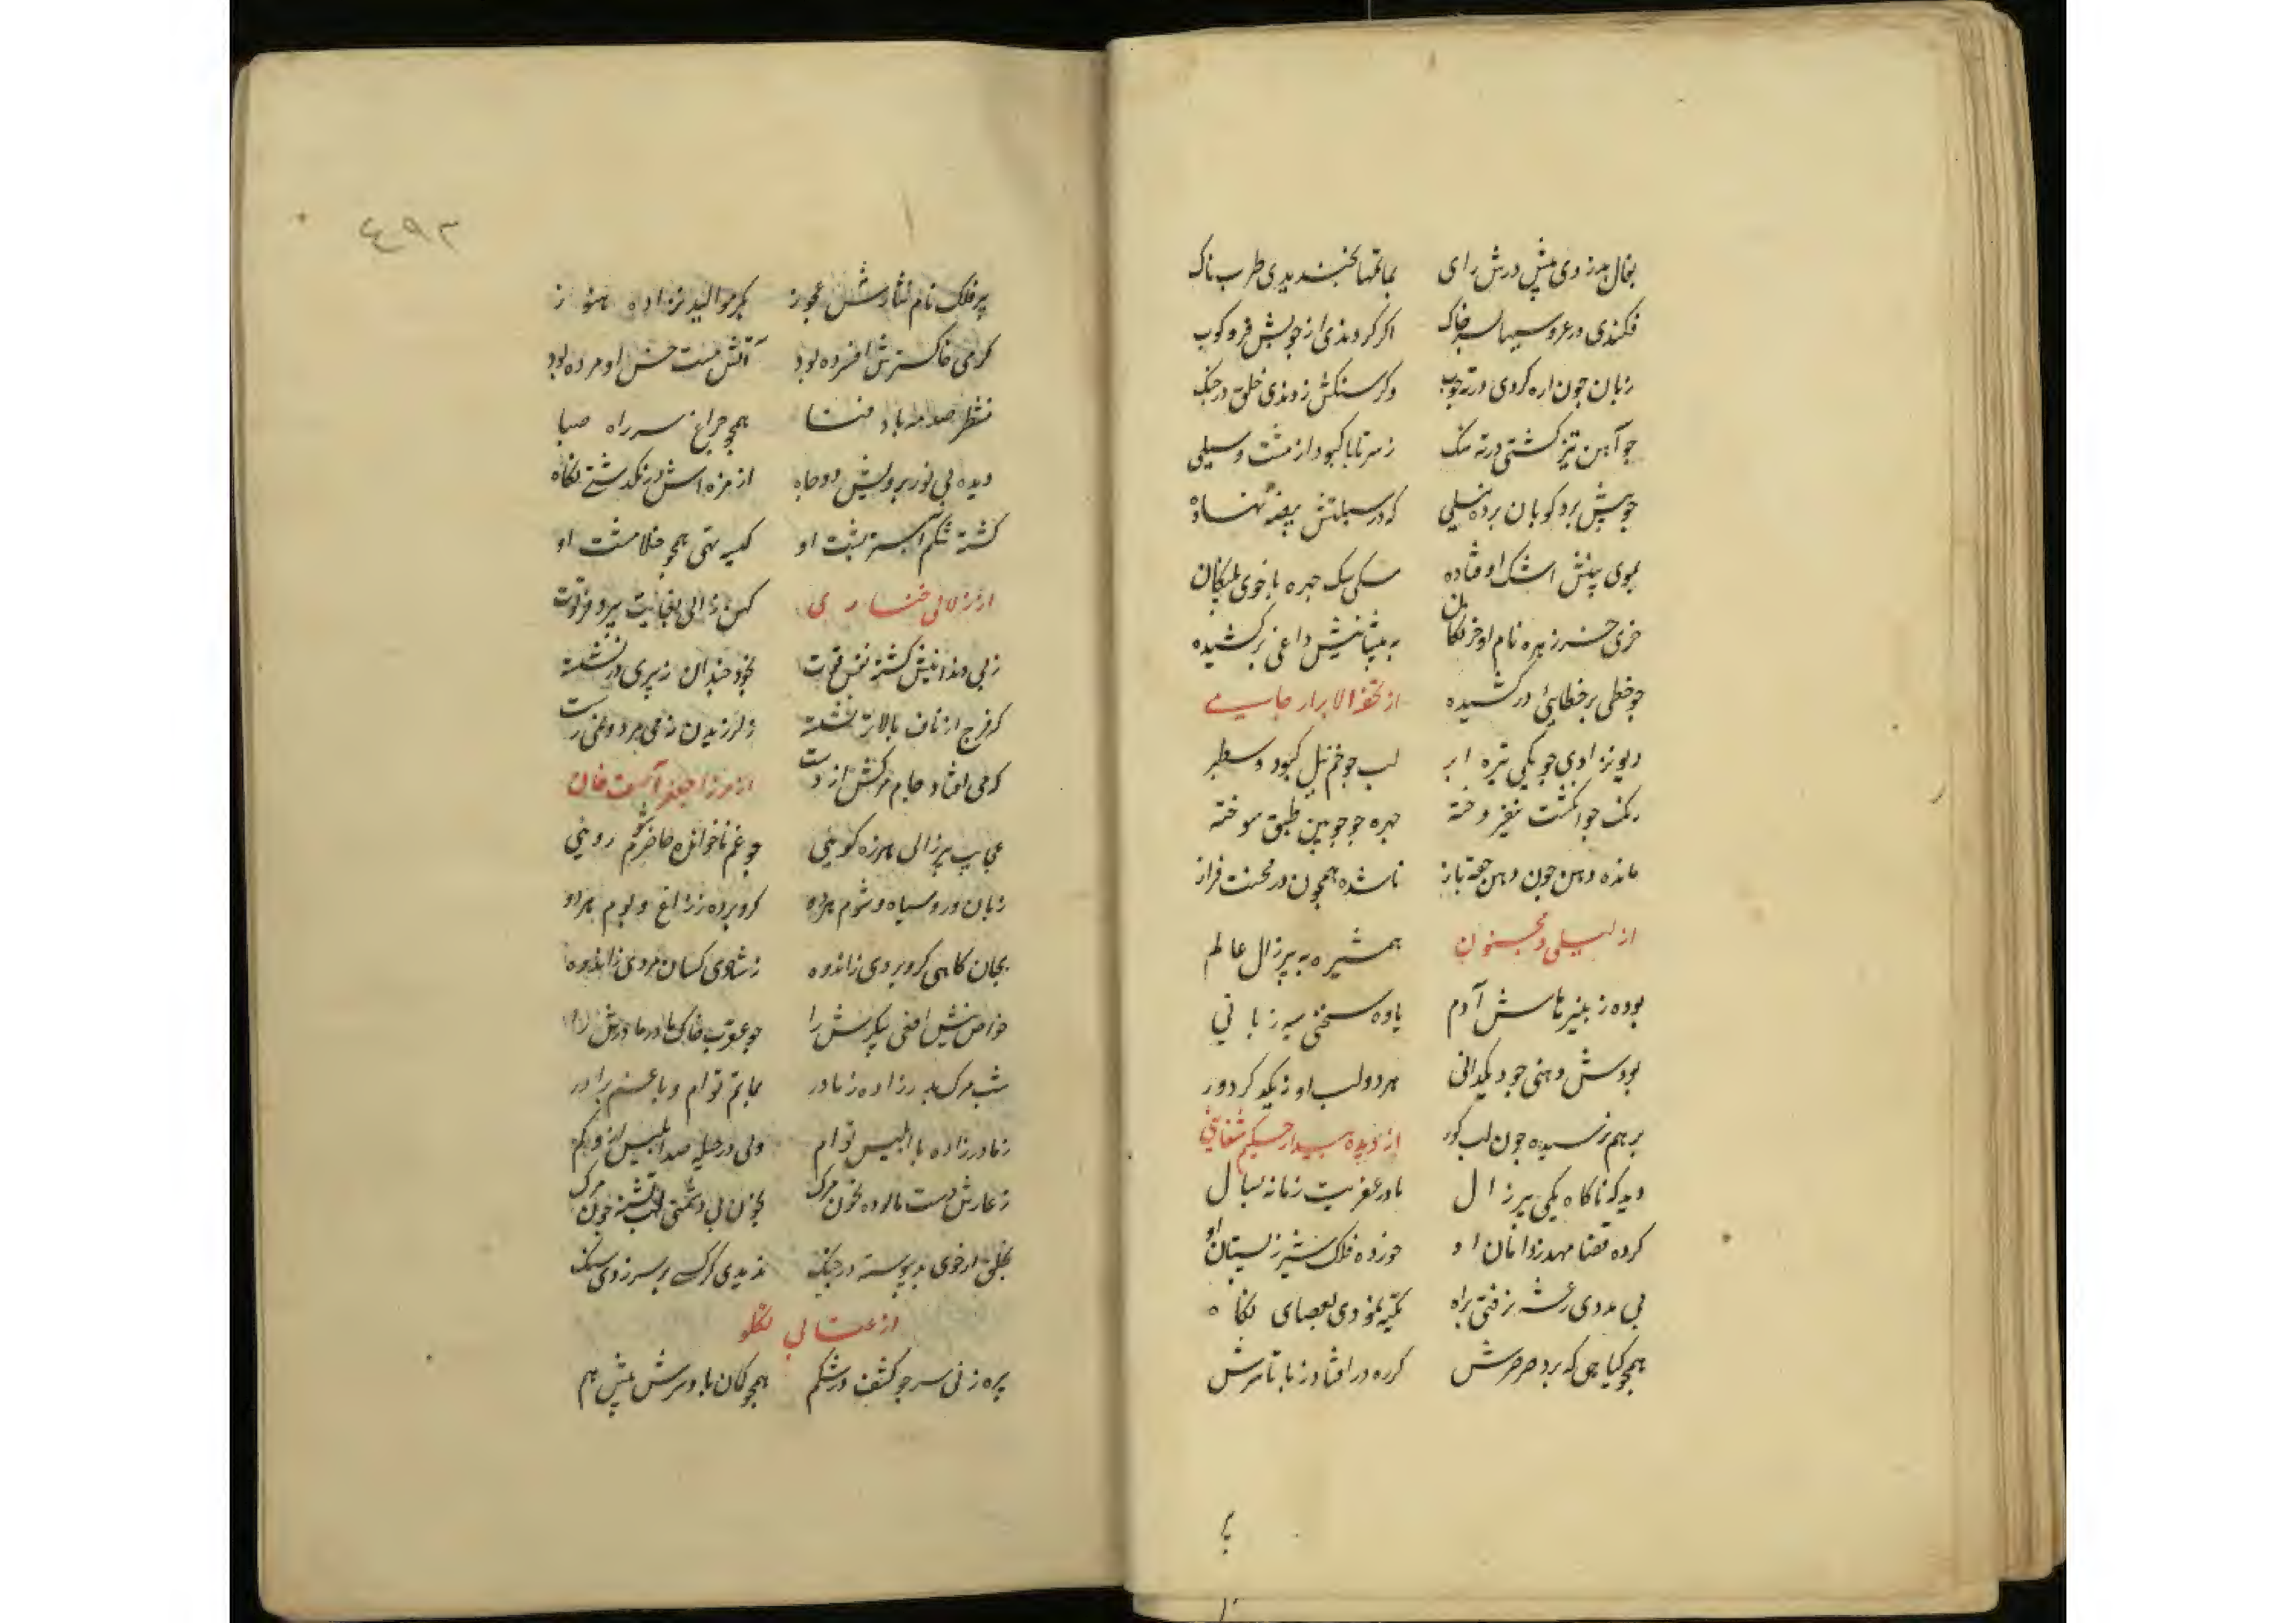 بفال بد زدی پیش درش رای بماتمها بخندیدی طرب ناک
فکندی در عروسیها بسر خاک اگر کردندی از چوبش فروکوب
زبان چون اره کردی در ته چوب وگر سنگش زدندی خلق در جنگ
چو آهن تیز گشتی در ته سنگ ز سر تا پا کبود از مشت و سیلی
که در سبلتش بیضه نهاده
ببوی پیش اشک اوفتاده
به پیشانیش داغی برکشیده
چو خطی بر خطایی درکشیده از تحفة الابرار جامی
دیو نژادی چو یکی تیره ابر لب چو خم نیل کبود و سطبر
رنگ چو انگشت نیفروخته چهره چو چوبین طبق سوخته
مانده دهن چون دهن حقه باز ناشده همچون در محنت فراز
از لیلی و مجنون همشیره پیر زال عالم
بوده ز نبیرهاش آدم یاوه سخنی سیه زبانی
بودش دهنی چو دیکدانی هر دو لب او ز یکدگر دور
بر هم نرسیده چون لب گور از دیده بیدار حکیم شفائی
دید که ناگاه یکی پیر زال مادر عفریت زمانه بسال
کرده قضا مهد ز دامان او خورده فلک شیر ز پستان او
بی مددی رعشه نرفتی براه تکیه نمودی بعصای نگاه
همچو گیاهی که برد صرصرش گره در افتاد ز پا تا سرش
۴۹۳
پیر فلک نام نشادش عجوز بکر موالید نزاده هنوز
گرمی خاکسترش افسرده بود آتش نیست خس او مرده بود
منتظر صدمه باد فنا همچو چراغ سر راه صبا
دیده بی نور برویش دو چاه از مژه اش در نگذشتی نگاه
گشته شکم آبستر پشت او کیسه تهی همچو خلا مشت او
از زلالی خنساری کهن زالی بغایت پیر و فرتوت
ز بی دندانیش گشته نفس قوت بخود چندان ز پیری درنشسته
که فرج از ناف بالاتر نشسته ز لرزیدن نمی برد
که می افتاد جام مرگش از دست از مرزا جعفر آصف خان
عجایب پیر زالی هرزه گویی چو غم ناخوانده حاضر شوم رویی
زبان دور و سیاه و شوم هر دو گرو برده ز زاغ و بوم هر دو
بجان کاهی گرو بردی ز اندوه ز شادی کسان مردی ز اندوه
خواص نیش افعی پیکرش را چو عقرب خاک
شب مرگ پدر زاده ز مادر بماتم توام و با غم برادر
ز مادر زاده با ابلیس توام ولی در حیله صد ابلیس ازو کم
بخون بی دشمنی لب تشنه چون مرگ
بخلق از خوی بد پیوسته در جنگ ندیدی گر کسی بر سر زدی سنگ
از عتابی تکلو
پره زنی سر چو کشف در شکم همچو کمان پا و سرش پیش هم